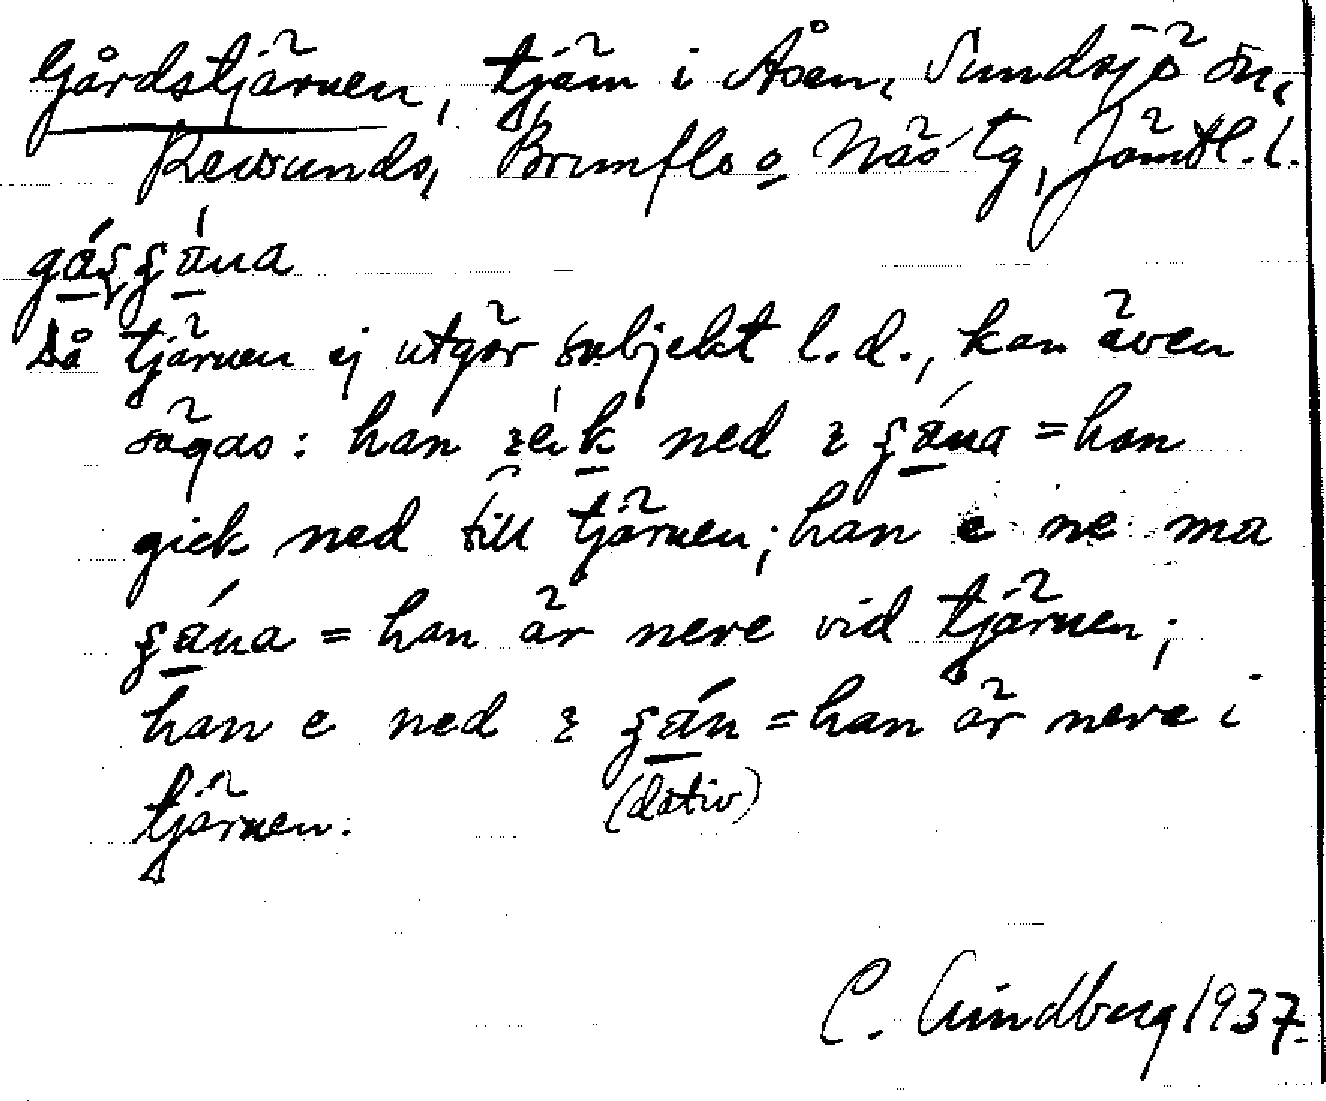 Gårdstjärnen, tjärn i Åsen, Sundsjö sn,
Revsunds, Brunflo o Näs tg, Jämtl. l.
Då tjärnen ej utgör subjekt l. d., kan även
sägas: han ned = han
gick ned till tjärnen; han e ne ma
= han är nere vid tjärnen;
han e ned = han är nere i
(dativ)
tjärnen.
C. Lindberg 1937.